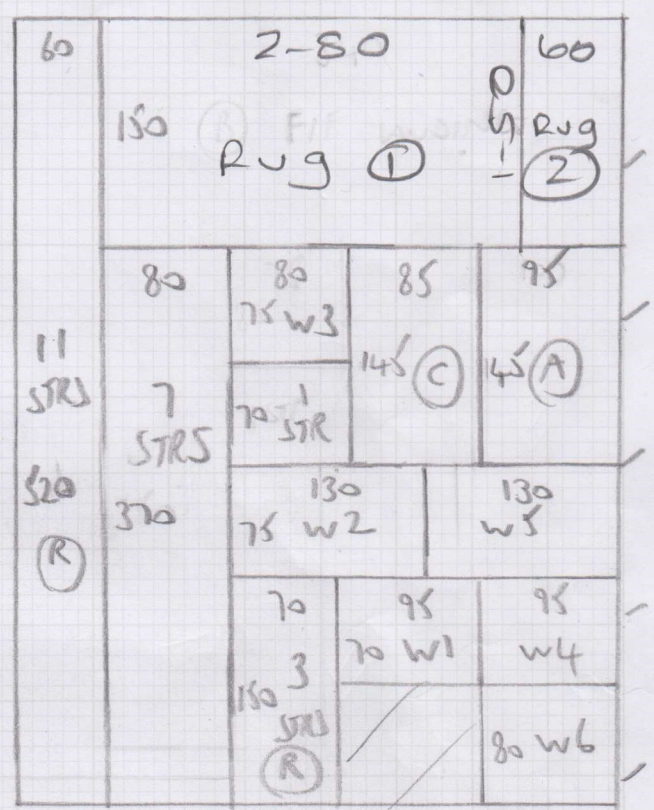 60
2-80
60
150
Rug 1
Rug
2
80
80
75 W3
85
95
11
STRS
7
STRS
70 1
STR
145 C
145 A
520
R
370
130
75 W2
130
W5
70
95
95
150 3
STRS
R
70 W1
W4
80 W6